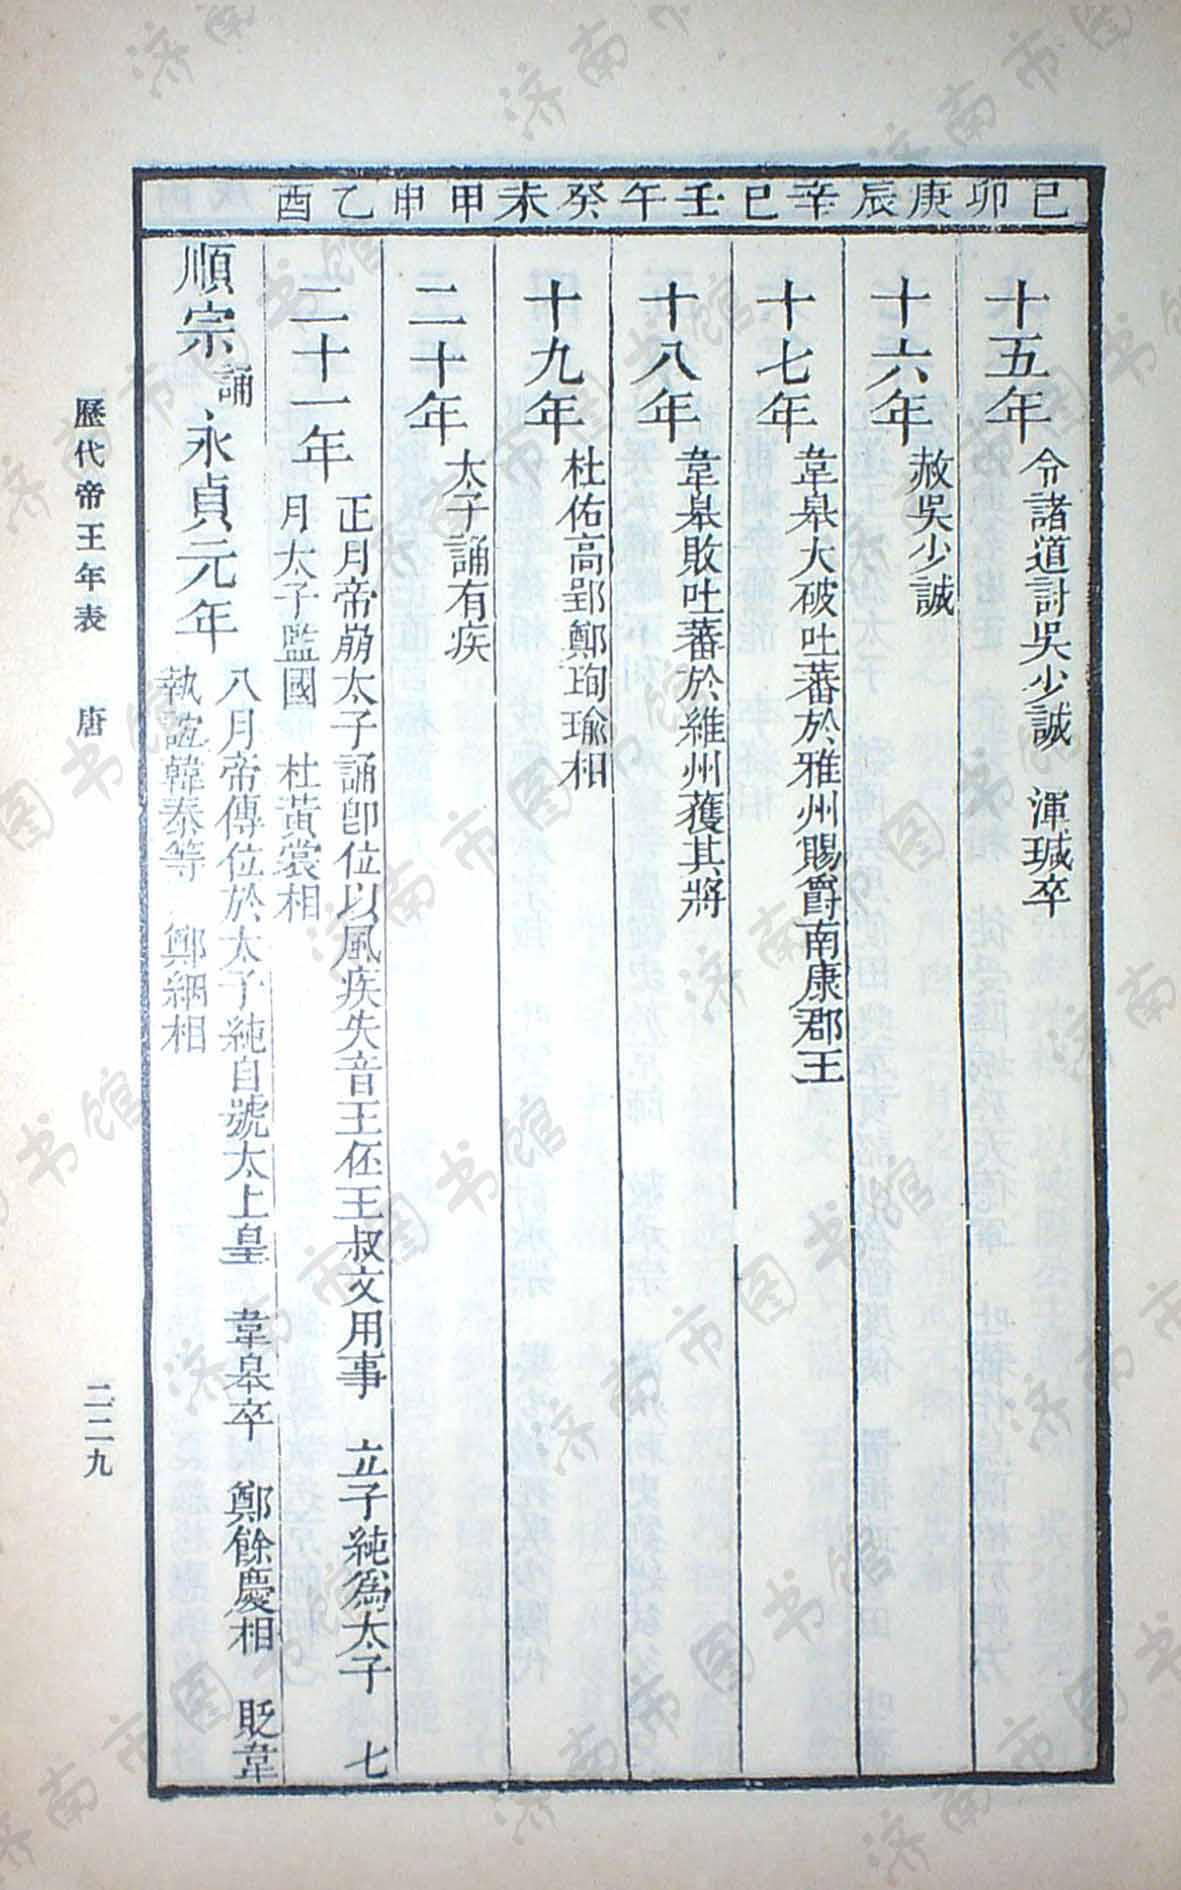 己卯 庚辰 辛巳 壬午 癸未 甲申 乙酉
十五年 令諸道討吳少誠 渾瑊卒
十六年 赦吳少誠
十七年 韋皋大破吐蕃於雅州賜爵南康郡王
十八年 韋皋敗吐蕃於維州獲其將
十九年 杜佑高郢鄭珣瑜相
二十年 太子誦有疾
二十一年 正月帝崩太子誦卽位以風疾失音王伾王叔文用事 立子純爲太子 七
月太子監國 杜黃裳相
順宗誦、永貞元年 八月帝傳位於太子純自號太上皇 韋皋卒 鄭餘慶相 貶韋
執誼韓泰等 鄭絪相
歷代帝王年表 唐 二二九
济南市图书馆